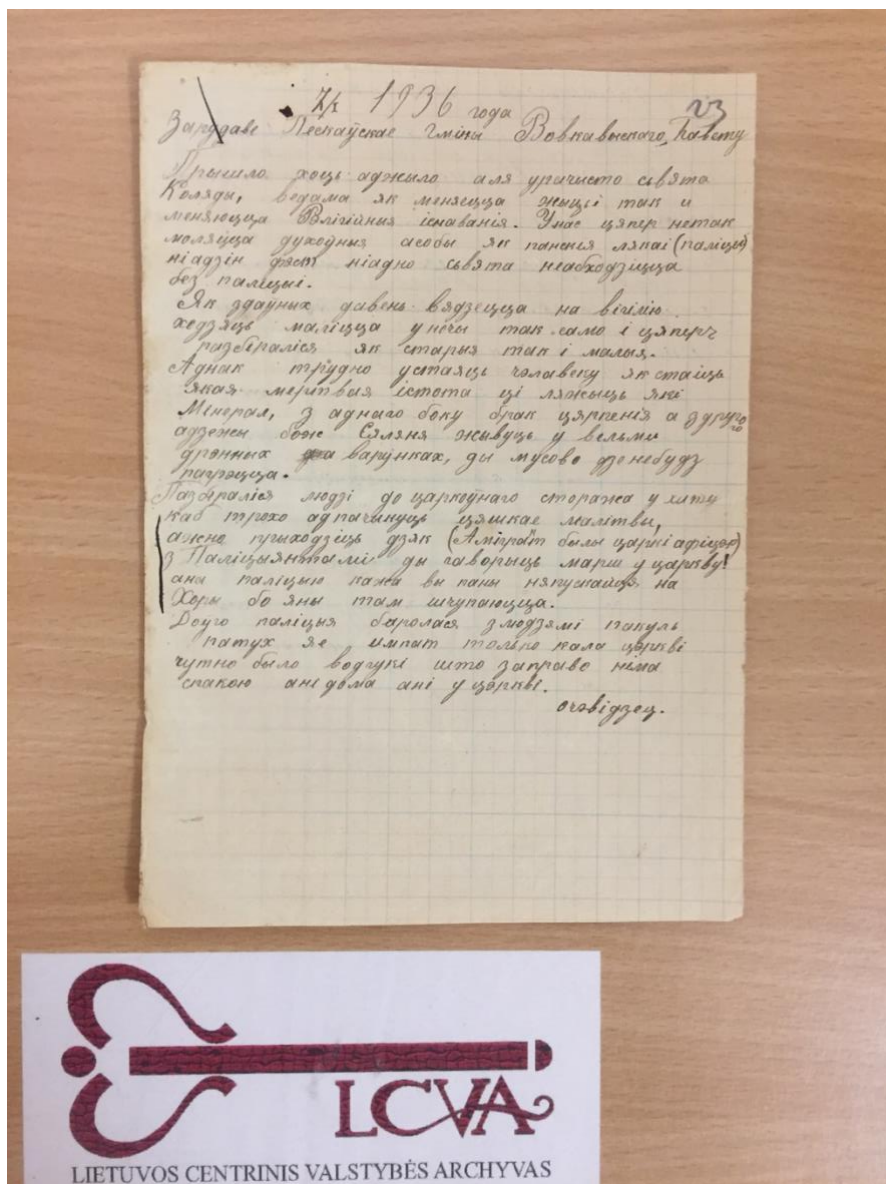 7/I 1936 года 23
Зарудаве Пескаўскае гміны Вовкавыскаго, Павету
Прышло хоць аджыло аля урачысто сьвята
Коляды, ведама як меняецца жыцьцё так и
меняюцца Рэлігійния існаванія. Унас цяпер нетак
моляцца духоўныя асобы як панскія ляпаі (паліцыя)
ніадзін фэст ніадно сьвята неабходзіцца
без паліцыі.
Як здаўных давень вядзецца на вігілію
ходзяць маліцца уночы так само і цяперъ
разбіраліся як старыя так і малыя.
Аднак трудно устаяць чэлавеку як стаіць
якая мертвая істота ці ляжыць які
Мінерал, з аднаго боку брак цярпенія а з друго
го
адзежы бож Сяляня жывуць у вельмі
дрэнных варунках, ды мусово дзенебудз
пагрэцца.
Пазьбіраліся людзі до царкоўнаго стоража у хату
каб трохо адпачынуць цяшкае малітвы,
ажно прыходзіць дзяк (Амігрант былы царскі афіцэр)
з Паліцыянтамі ды гаворыць марш у царкву!
ана паліцыю кажа вы паны няпускайця на
Хоры бо яны там шчупающца.
Доуго паліцыя баролася злюдзямі пакуль
патух яе импэт только кала цэркві
чутно было водгукі што заправо німа
спакою ані дома ані у цэркві.
очэвідзец.
LCVA
LIETUVOS CENTRINIS VALSTYBĖS ARCHYVAS